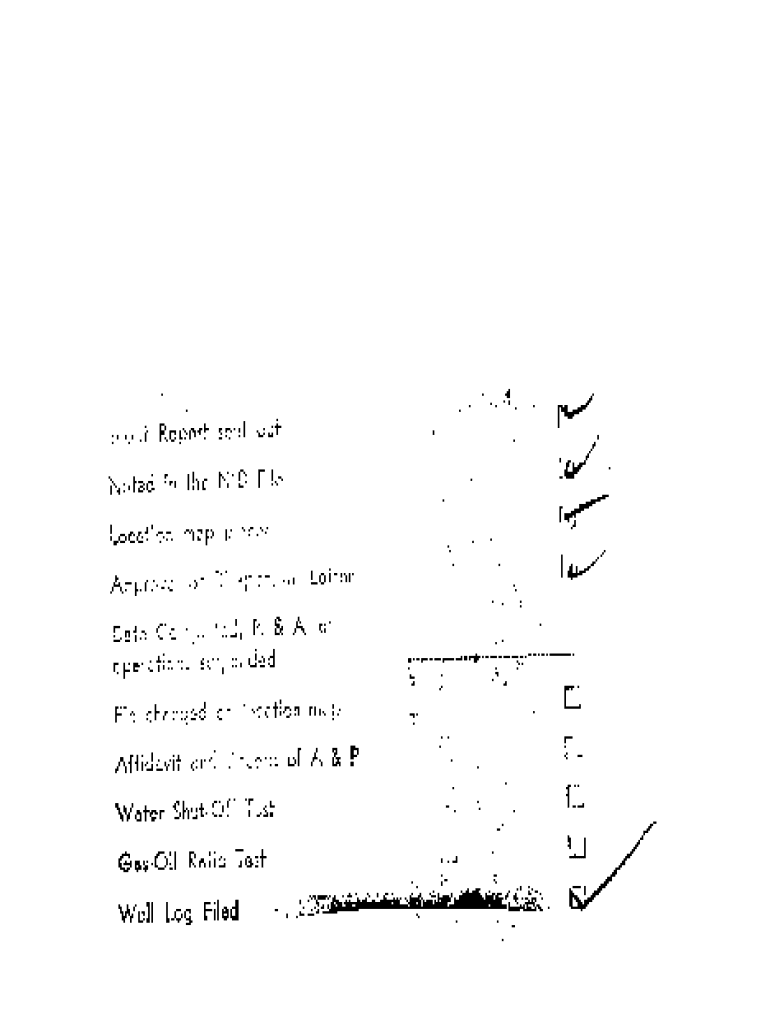 Report sent out
Noted in the NID File
Location map
Approval or Letter
Date Completed, P. & A. or
operations suspended
Pin changed on location map
Affidavit and Record of A & P
Water Shut-Off Test
Gas-Oil Ratio Test
Well Log Filed